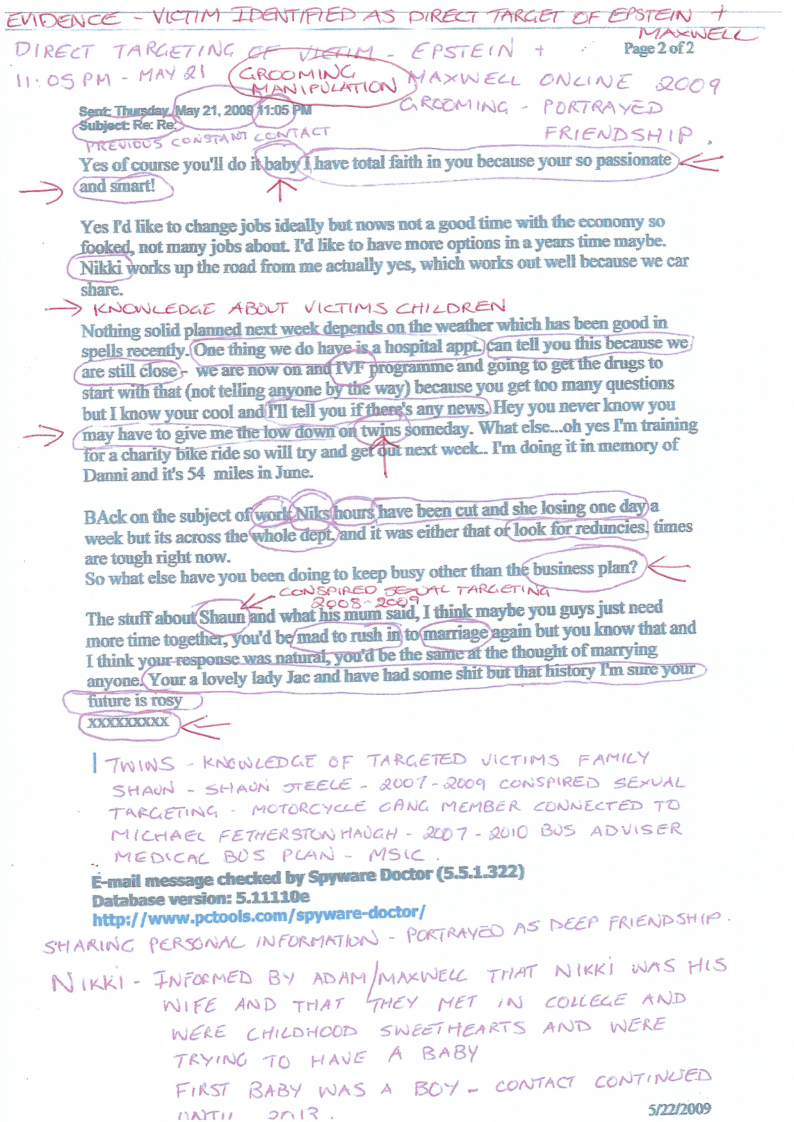 EVIDENCE - VICTIM IDENTIFIED AS DIRECT TARGET OF EPSTEIN +
MAXWELL
Page 2 of 2
DIRECT TARGETING OF VICTIM - EPSTEIN +
11:05 PM - MAY 21
GROOMING
MANIPULATION
MAXWELL ONLINE 2009
GROOMING - PORTRAYED
FRIENDSHIP.
Sent: Thursday, May 21, 2009 11:05 PM
Subject: Re: Re:
PREVIOUS CONSTANT CONTACT
Yes of course you'll do it baby I have total faith in you because your so passionate
and smart!
Yes I'd like to change jobs ideally but nows not a good time with the economy so
fooked, not many jobs about. I'd like to have more options in a years time maybe.
Nikki works up the road from me actually yes, which works out well because we car
share.
KNOWLEDGE ABOUT VICTIMS CHILDREN
Nothing solid planned next week depends on the weather which has been good in
spells recently. One thing we do have is a hospital appt. can tell you this because we
are still close - we are now on and IVF programme and going to get the drugs to
start with that (not telling anyone by the way) because you get too many questions
but I know your cool and I'll tell you if there's any news. Hey you never know you
may have to give me the low down on twins someday. What else...oh yes I'm training
for a charity bike ride so will try and get out next week.. I'm doing it in memory of
Danni and it's 54 miles in June.
BAck on the subject of work Niks hours have been cut and she losing one day a
week but its across the whole dept. and it was either that or look for reduncies, times
are tough right now.
So what else have you been doing to keep busy other than the business plan?
CONSPIRED SEXUAL TARGETING
2008-2009
The stuff about Shaun and what his mum said, I think maybe you guys just need
more time together, you'd be mad to rush in to marriage again but you know that and
I think your response was natural, you'd be the same at the thought of marrying
anyone. Your a lovely lady Jac and have had some shit but that history I'm sure your
future is rosy
xxxxxxxxx
TWINS - KNOWLEDGE OF TARGETED VICTIMS FAMILY
SHAUN - SHAUN STEELE - 2007-2009 CONSPIRED SEXUAL
TARGETING - MOTORCYCLE GANG MEMBER CONNECTED TO
MICHAEL FETHERSTONHAUGH - 2007-2010 BUS ADVISER
MEDICAL BUS PLAN - MSIC.
E-mail message checked by Spyware Doctor (5.5.1.322)
Database version: 5.11110e
http://www.pctools.com/spyware-doctor/
SHARING PERSONAL INFORMATION - PORTRAYED AS DEEP FRIENDSHIP.
NIKKI - INFORMED BY ADAM/MAXWELL THAT NIKKI WAS HIS
WIFE AND THAT THEY MET IN COLLEGE AND
WERE CHILDHOOD SWEETHEARTS AND WERE
TRYING TO HAVE A BABY
FIRST BABY WAS A BOY - CONTACT CONTINUED
UNTIL 2013.
5/22/2009